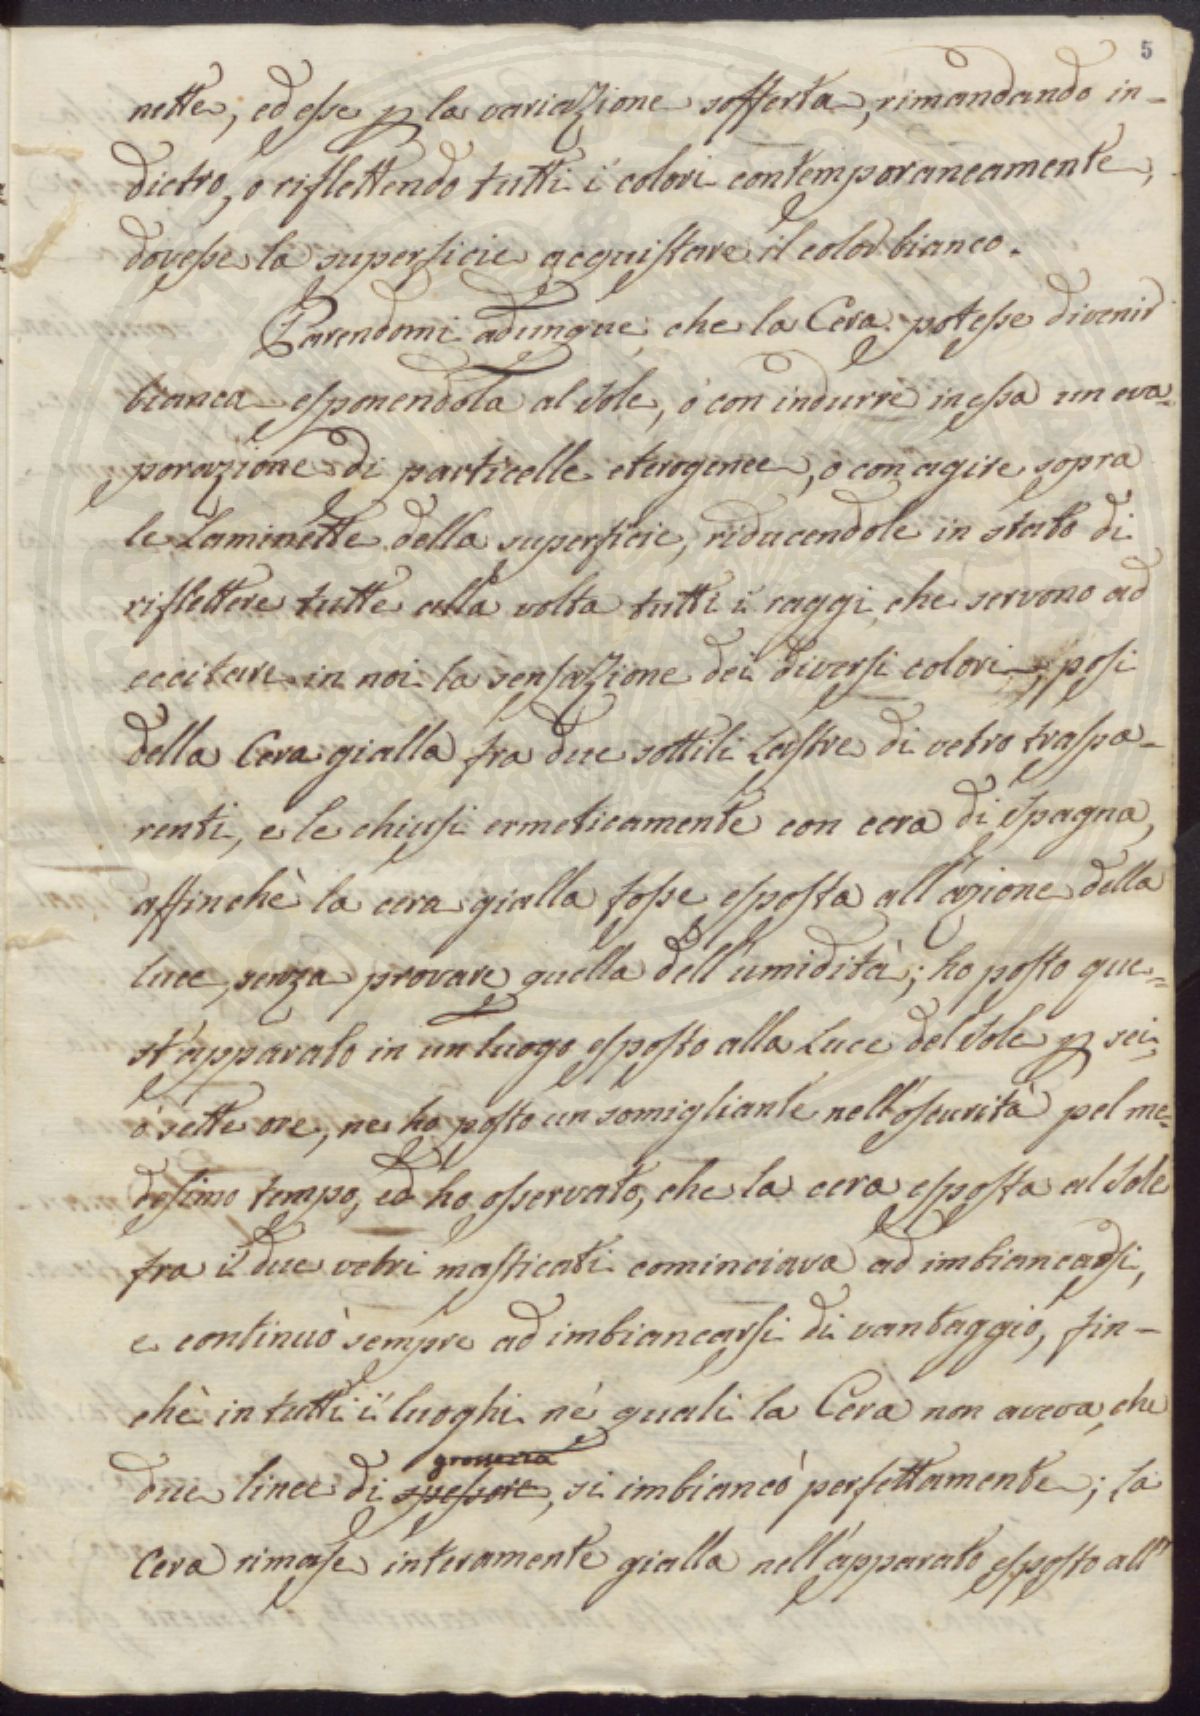 5
nette, ed esse p la variazione sofferta, rimandando in-
dietro, o riflettendo tutti i colori contemporaneamente,
dovesse la superficie acquistare il color bianco.
Parendomi adunque, che la Cera potesse divenir
bianca esponendola al Sole, ò con indurre in essa un eva=
porazione di particelle eterogenee, o con agire sopra
le Laminette della superficie, riducendole in stato di
riflettere tutte alla volta tutti i raggi, che servono ad
eccitare in noi la sensazione dei diversi colori, posi
della Cera gialla fra due sottili Lastre di vetro traspa-
renti, e le chiusi ermeticamente con cera di Spagna,
affinchè la cera gialla fosse esposta all'azione della
luce, senza provare quella dell'umidità; ho posto que=
st'apparato in un luogo esposto alla Luce del Sole p sei,
ò sette ore, ne ho posto un somigliante nell'oscurità pel me=
desimo tempo, ed ho osservato, che la cera esposta al Sole
fra i due vetri masticati cominciava ad imbiancarsi,
e continuò sempre ad imbiancarsi di vantaggio, fin-
chè in tutti i luoghi né quali la Cera non aveva, che
grossezza
due linee di spessore, si imbiancò perfettamente; la
Cera rimase interamente gialla nell'apparato esposto all'